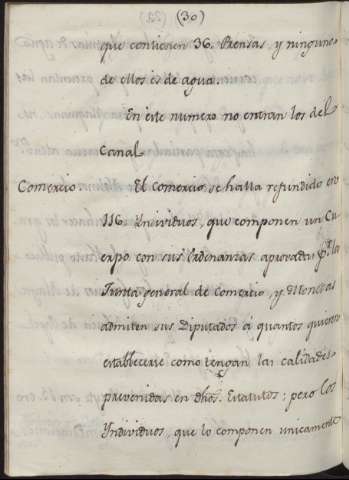 (30)
que contienen 36. Prensas, y ninguno
de ellos es de agua.
En este numero no entran los del
Canal
Comercio. El comercio se halla refundido en
116 Individuos, que componen un Cu
erpo con sus Ordenanzas aprovadas p.r la
Junta general de Comercio, y Monedas
admiten sus Diputados á quantos quieren
establecerse como tengan las calidades
prevenidas en dhos. Estatutos; pero los
Individuos, que lo componen unicamente